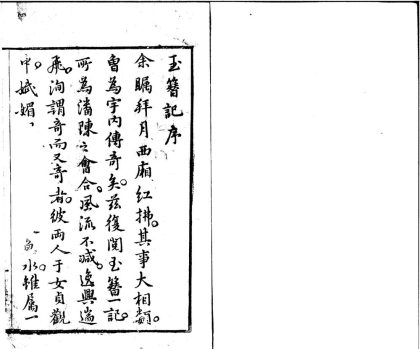 玉簪記序
余矚拜月西廂紅拂。其事大相類。
曾為宇內傳奇矣。茲復閱玉簪一記。
所為潘陳之會合。風流不減。逸興遄
飛。洵謂奇而又奇者。彼兩人于女貞觀
中。娬媚、水雖屬一